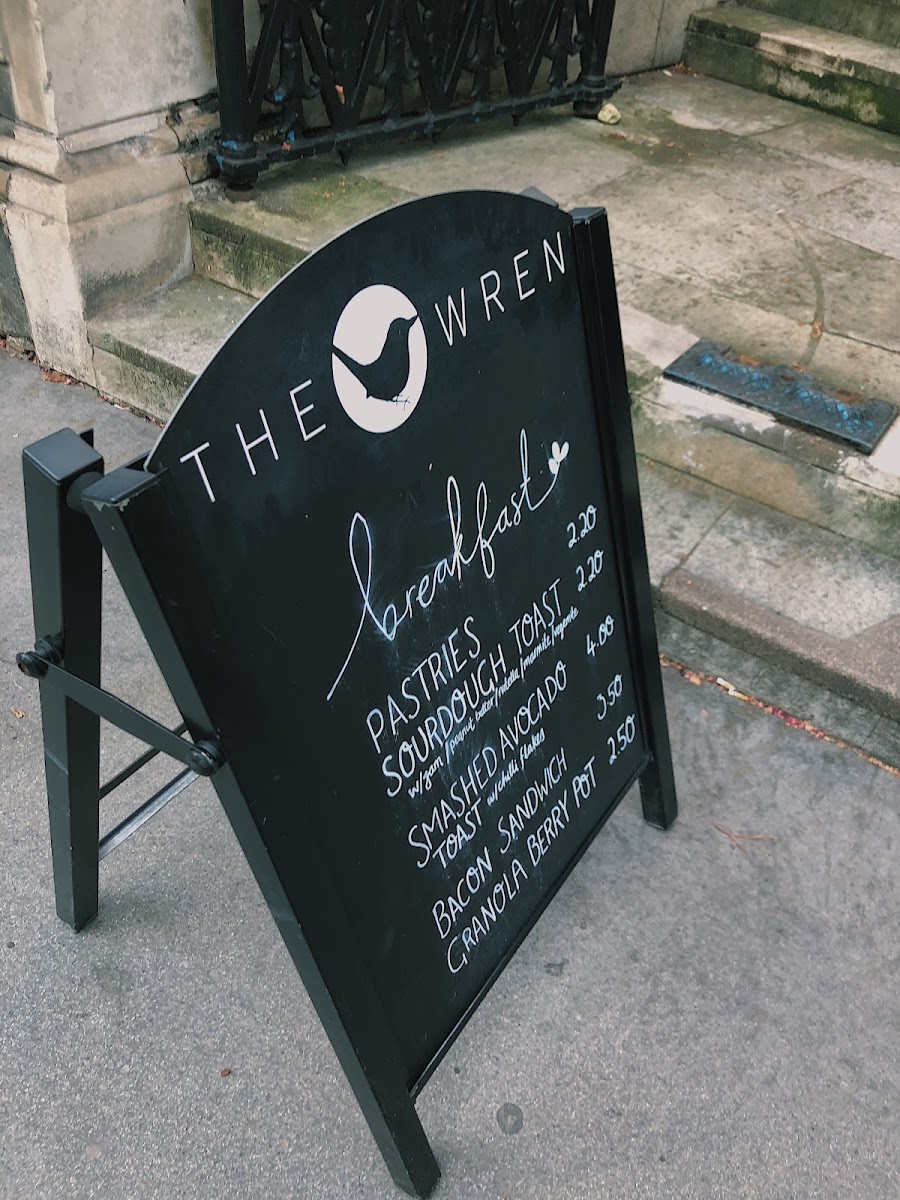 THE WREN
breakfast
PASTRIES 2.20
SOURDOUGH TOAST 2.20
w/jam/peanut butter/nutella/marmite/vegemite
SMASHED AVOCADO 4.00
TOAST w/chilli flakes
BACON SANDWICH 3.50
GRANOLA BERRY POT 2.50